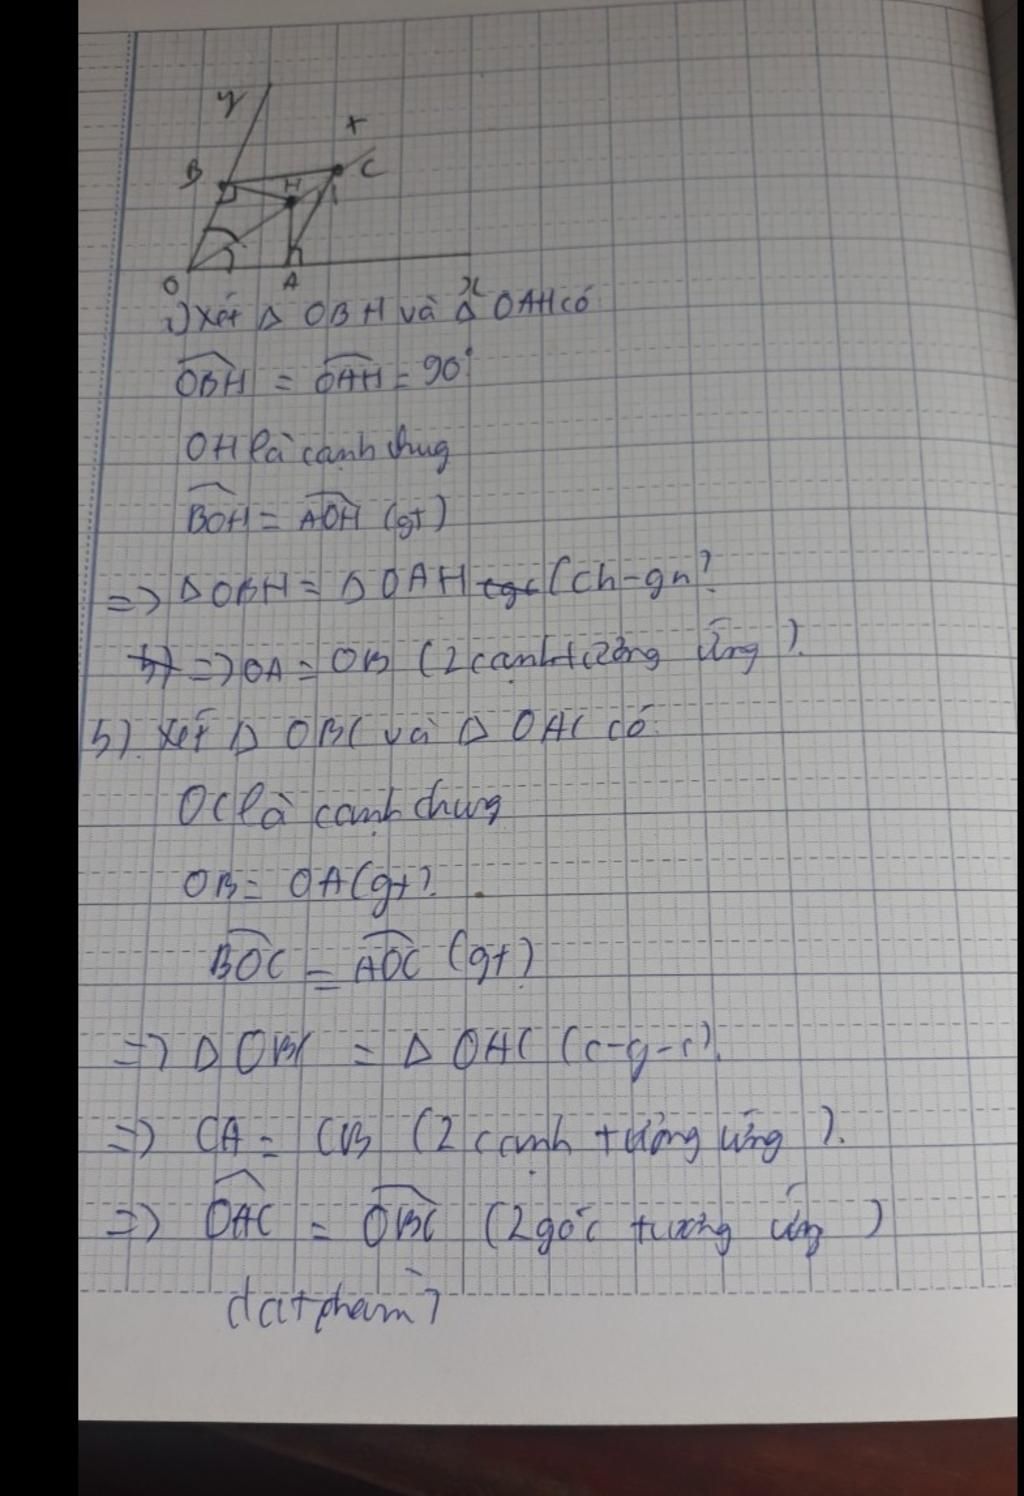 y
t
B
H
C
O
A
x
a) Xét Δ OBH và Δ OAH có
OBH = OAH = 90°
OH là cạnh chug
BOH = AOH (gt)
=> Δ OBH = Δ OAH cgc (ch-gn)
b) => OA = OB (2 cạnh tương ứng).
b). Xét Δ OBC và Δ OAC có
OC là cạnh chung
OB = OA (gt).
BOC = AOC (gt)
=> Δ OBC = Δ OAC (c-g-c).
=> CA = CB (2 cạnh tương ứng).
=> OAC = OBC (2 góc tương ứng)